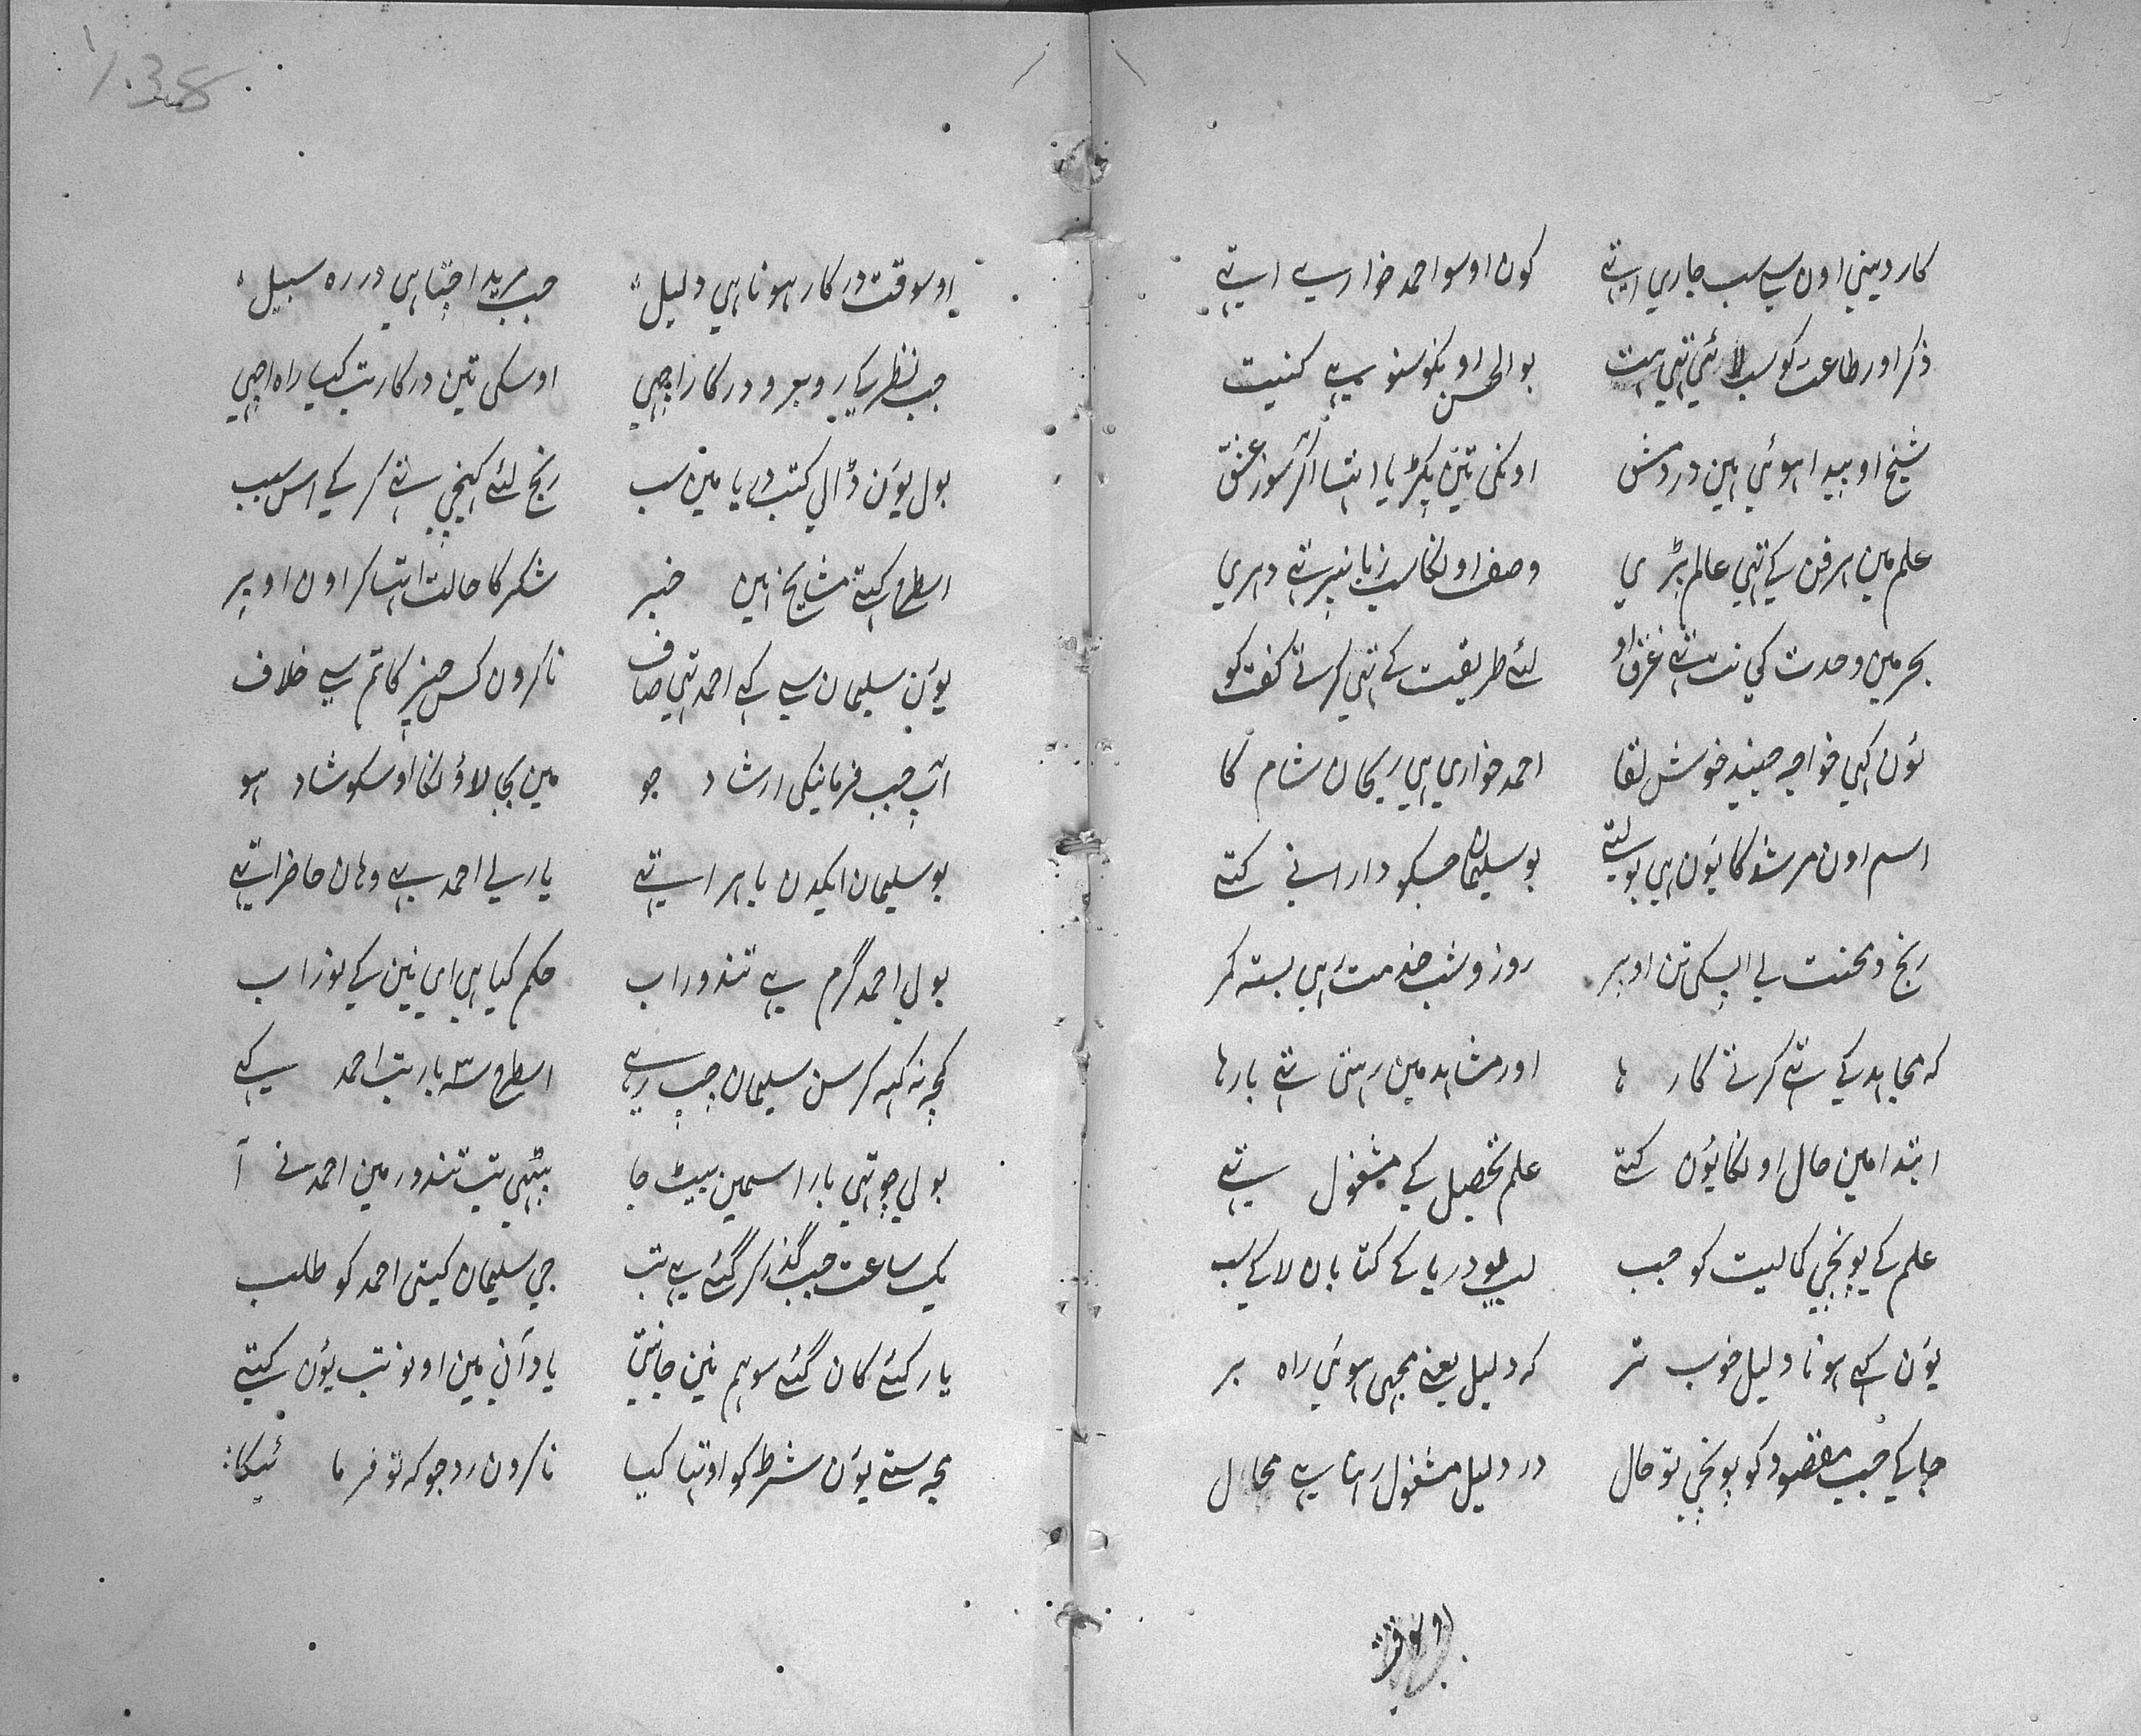 کار دینی اون سے سب جاری اتھے کون اوسو احمد خواری اتھے
ذکر اور طاعت کو سب لائی تہی ہت بوالحسن اونکو سنو ہے کنیت
شیخ او پیدا ہوئی ہین در دمشق اونکی تین پکڑیا اتھا آتش سوز عشق
علم مین ہر فن کے تہی عالم بڑی وصف اونکا سب زبانپر تہے دہری
بحر مین وحدت کی نت تہے غرق او لئے طریقت کے تہی کرتے گفت گو
یون کہی خواجہ جنید خوش لقا احمد خواری ہی ریحان شام کا
اسم اون مرشد کا یون ہی بولتے بو سلیمان جسکو دارانی کتے
رنج و محنت لے اپسکی تن اوپر روز و شب خدمت رہی بستہ کمر
کہ مجاہد کے تہے کرتے کار ہا اور مشاہد مین رہتی تہے بارہا
ابتدا مین حال اونکا یون کتے علم تحصیل کے مشغول تہے
علم کے پونچی کمالیت کو جب لب پو دریا کے کتابان لاکے سب
یون کہے ہونا دلیل خوب تر کہ دلیل یعنے مجہی ہوئی راہ بر
جاکے جب مقصود کو پونچی تو حال در دلیل مشغول رہنا ہے محال
اوسوقت
اوسوقت درکار ہونا ہی دلیل جب مرید اچتا ہی در رہ سبیل
جب نظر کے روبرو درکار اچھی اوسکی تین درکار تب کیا راہ اچھی
بول یون ڈالی کتب دریا مین سب رنج لئے کہینچی تہے کر کے اس سبب
اسطرح کہتے مشایخ ہین خبر شکر کا حالت اتھا کر اون اوپر
یون سلیمان سے کہے احمد تہی صاف ناکرون کس چیز کا تم سے خلاف
آپ جب فرمائینگی ارشاد جو مین بجا لاؤنگا اوسکو شاد ہو
بو سلیمان ایکدن باہر اتھے یار لے احمد سے وہان حاضر اتھے
بولے احمد گرم ہے تندور اب حکم کیا ہی اے نین کے نور اب
کچہ نہ کہہ کر سن سلیمان چپ رہے اسطرح سہ بار تب احمد کہے
بولے چوتہی بار اسمین بیٹ جا بیٹہی تب تندور مین احمد نے آ
یک ساعت جب گذر کر گئے ہے تب جی سلیمان کیتی احمد کو طلب
یار کئے کان گئے سو ہم نین جانتے یاد آنی مین اونو تب یون کہتے
مجہ ستے یون شرط کو او تہا کیا ناکرون رد جو کہ تو فرمائیگا